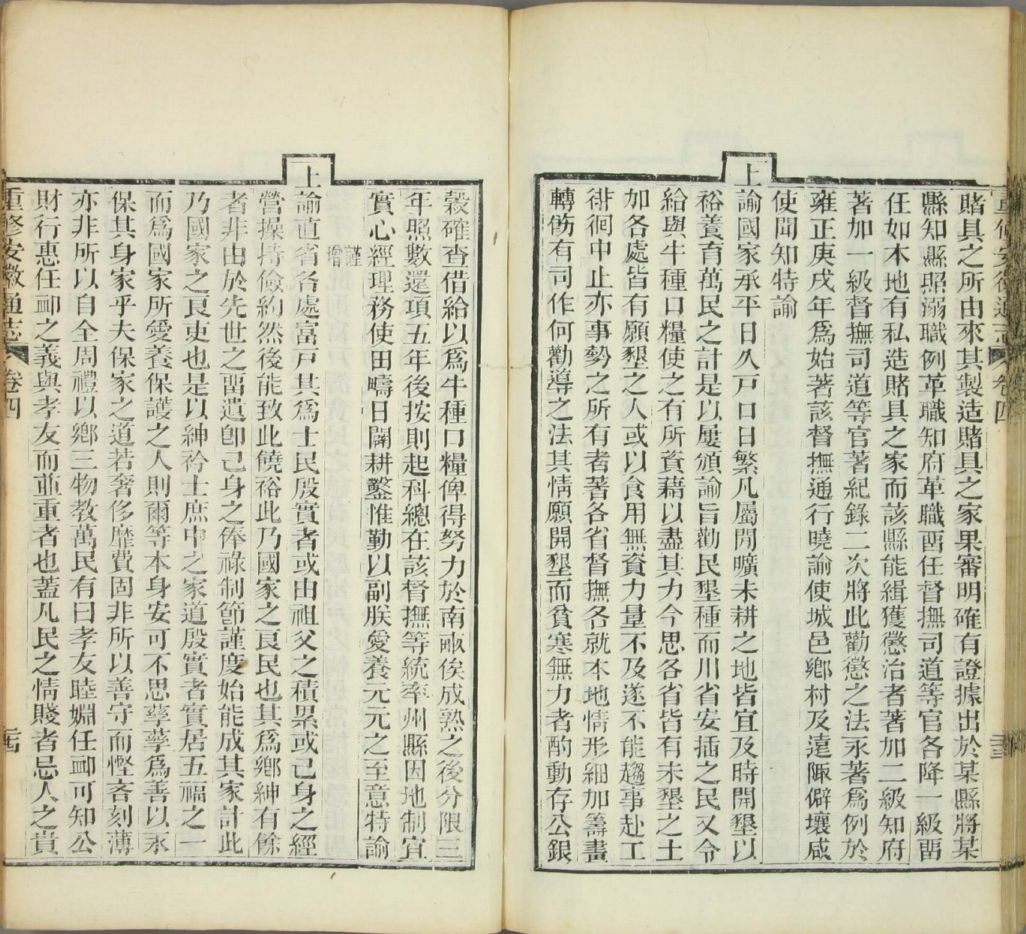 重修安徽通志 卷四
賭具之所由來其製造賭具之家果審明確有證據出於某縣將某
縣知縣照溺職例革職知府革職畱任督撫司道等官各降一級畱
任如本地有私造賭具之家而該縣能緝獲懲治者著加二級知府
著加一級督撫司道等官著紀錄二次將此勸懲之法永著爲例於
雍正庚戌年爲始著該督撫通行曉諭使城邑鄉村及遠陬僻壤咸
使聞知特諭
上諭國家承平日久戸口日繁凡屬閒曠未耕之地皆宜及時開墾以
裕養育萬民之計是以屢頒諭旨勸民墾種而川省安插之民又令
給與牛種口糧使之有所資藉以盡其力今思各省皆有未墾之土
加各處皆有願墾之人或以食用無資力量不及遂不能趨事赴工
徘徊中止亦事勢之所有者著各省督撫各就本地情形細加籌畫
轉飭有司作何勸導之法其情願開墾而貧寒無力者酌動存公銀
穀確查借給以爲牛種口糧俾得努力於南畝俟成熟之後分限三
年照數還項五年後按則起科總在該督撫等統率州縣因地制宜
實心經理務使田疇日闢耕鑿惟勤以副朕愛養元元之至意特諭
謹增
上諭直省各處富戸其爲士民殷實者或由祖父之積累或己身之經
營操持儉約然後能致此饒裕此乃國家之良民也其爲鄉紳有餘
者非由於先世之畱遺卽己身之俸祿制節謹度始能成其家計此
乃國家之良吏也是以紳衿士庶中之家道殷實者實居五福之一
而爲國家所愛養保護之人則爾等本身安可不思孳孳爲善以永
保其身家乎夫保家之道若奢侈靡費固非所以善守而慳吝刻薄
亦非所以自全周禮以鄉三物教萬民有曰孝友睦婣任䘏可知公
財行惠任䘏之義與孝友而並重者也蓋凡民之情賤者忌人之貴
重修安徽通志 卷四